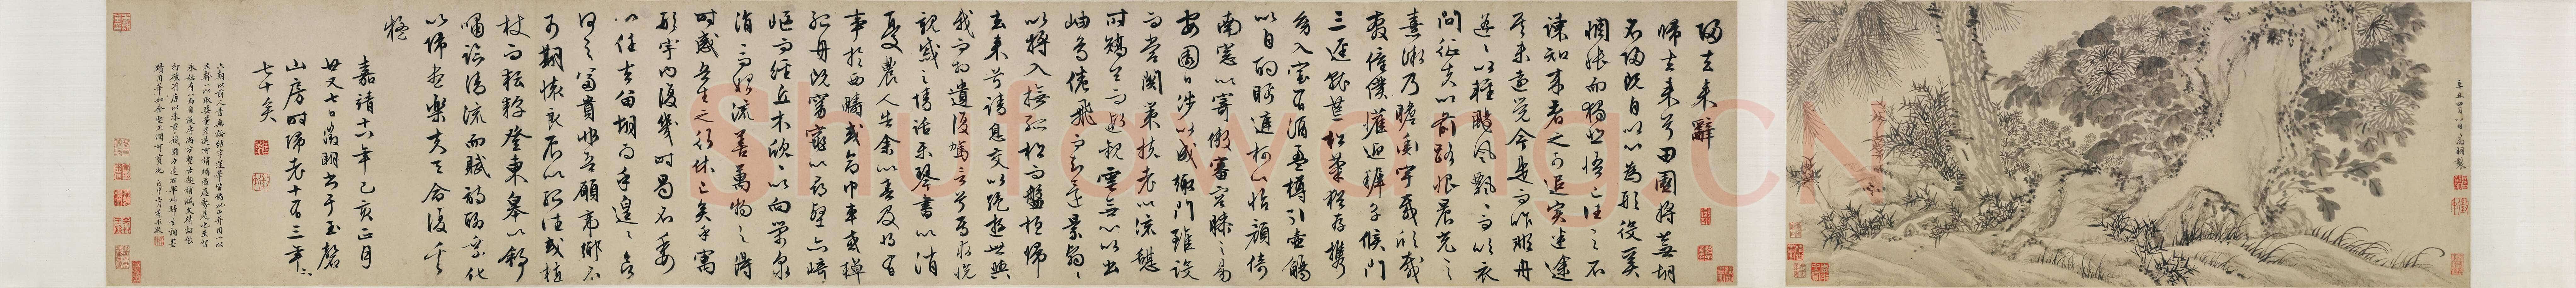 辛丑四月八日 高翔製
歸去来辭
歸去来兮田園将蕪胡
不歸既自以心為形役奚
惆悵而獨悲悟已往之不
諫知来者之可追實迷途
其未遠覺今是而昨非舟
遥〻以輕颺風飄〻而吹衣
問征夫以前路恨晨光之
熹微乃瞻衡宇載欣載
奔僮僕懽迎稚子候門
三逕就荒松菊猶存攜
幼入室有酒盈樽引壺觴
以自酌眄庭柯以怡顔倚
南窓以寄傲審容膝之易
安園日渉以成趣門雖設
而常關策扶老以流憩
時矯首而遐觀雲無心以出
岫鳥倦飛而知還景翳〻
以将入撫孤松而盤桓歸
去来兮請息交以絶遊世與
我而相遺復駕言兮焉求悦
親戚之情話樂琴書以消
憂農人告余以春及将有
事於西疇或命巾車或棹
孤舟既窈窕以尋壑亦崎
嶇而經丘木欣〻以向榮泉
涓〻而始流善萬物之得
時感吾生之行休已矣乎寓
形宇内復幾時曷不委
心任去留胡為乎遑〻欲
何之富貴非吾願帝鄉不
可期懷良辰以孤往或植
杖而耘耔登東皋以舒
嘯臨清流而賦詩聊乘化
以歸盡樂夫天命復奚
疑
嘉靖十六年己亥正月
廿又七日徵明書于玉磬
山房時歸老十有三年
七十矣
Shufawang.CN